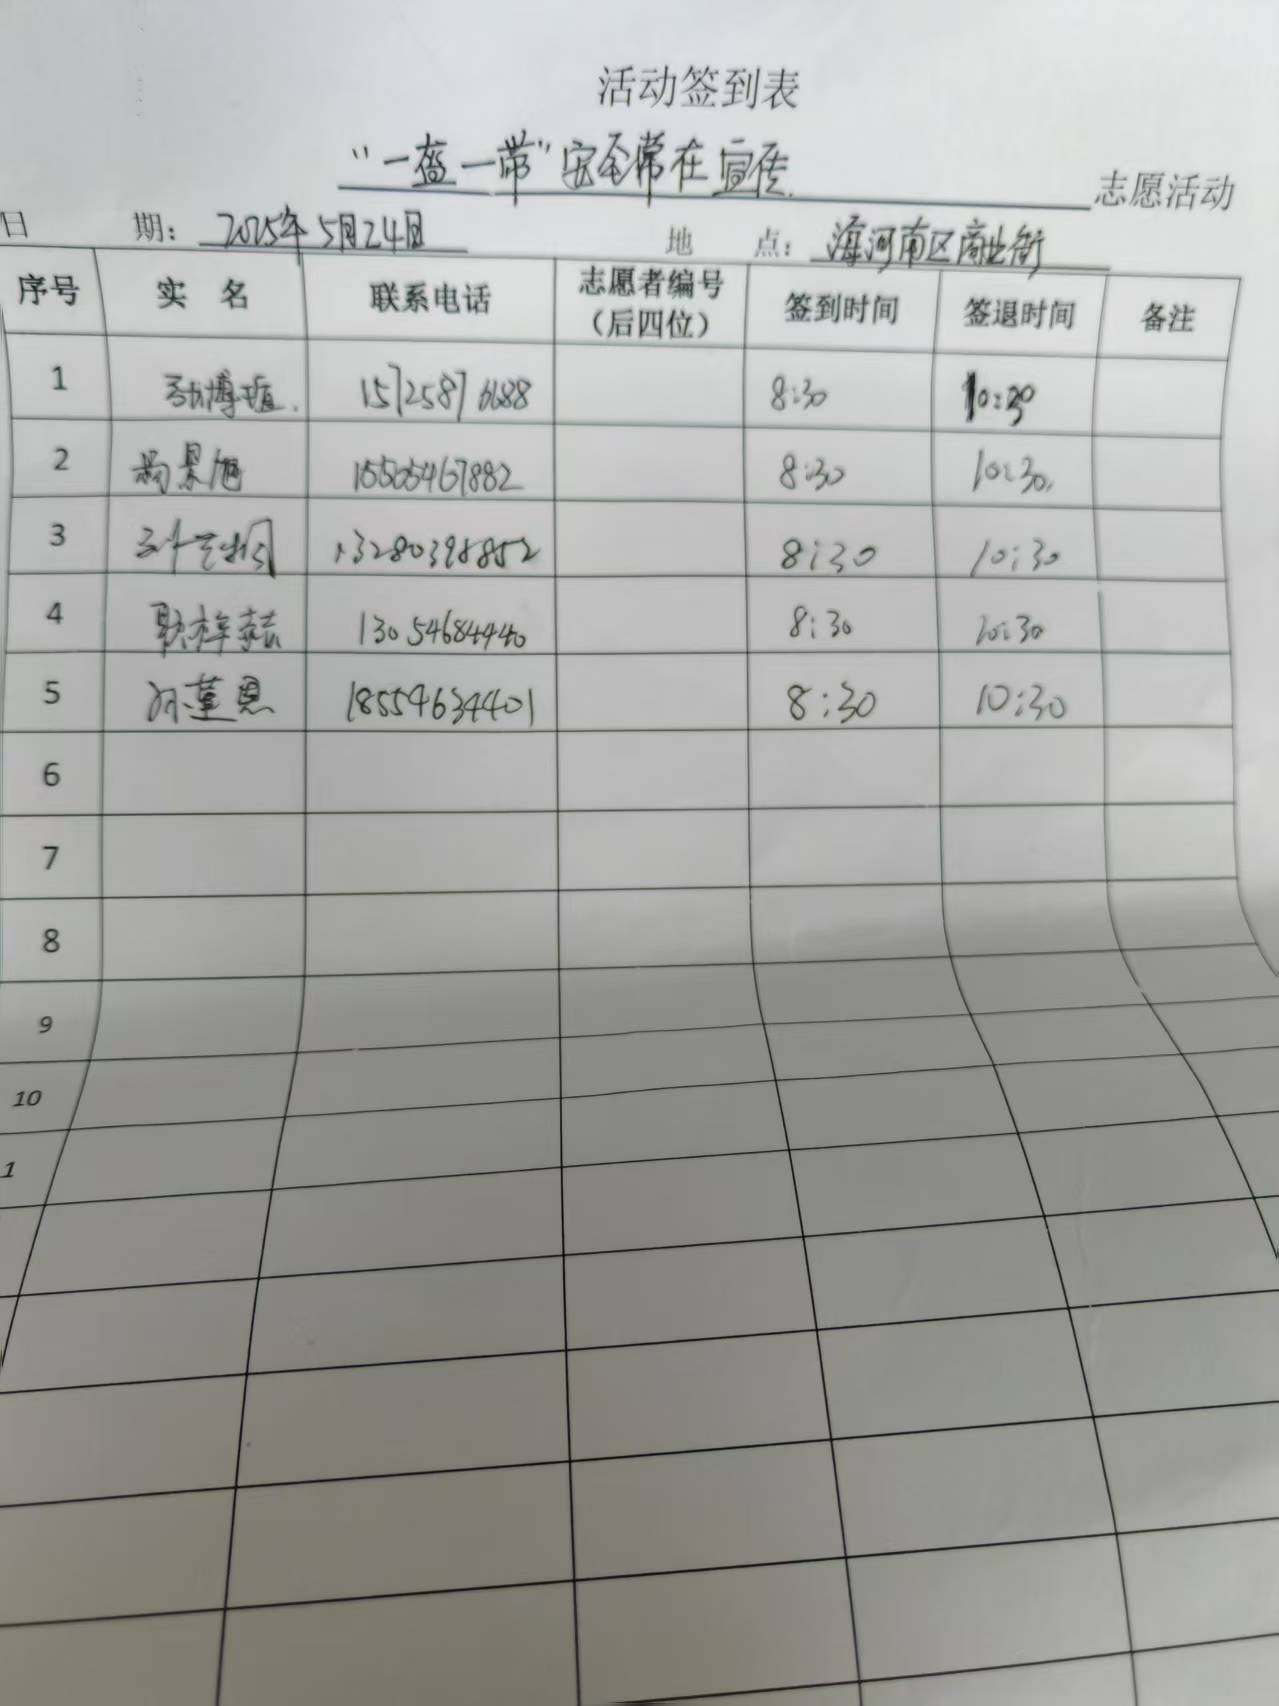 活动签到表
“一盔一带”安全常在宣传 志愿活动
日 期：2025年5月24日 地 点：海河南区商业街
序号 实 名 联系电话 志愿者编号（后四位） 签到时间 签退时间 备注
1 15725876688 8:30 10:30
2 杨景旭 15505467882 8:30 10:30
3 13280398852 8:30 10:30
4 耿梓赫 13054684440 8:30 10:30
5 孙莲恩 18554634401 8:30 10:30
6
7
8
9
10
1